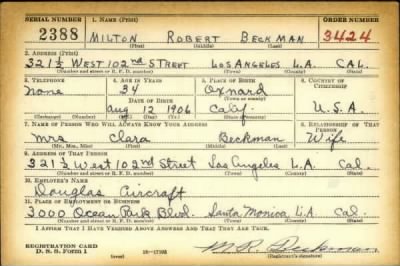 SERIAL NUMBER 1. NAME (Print) ORDER NUMBER
2388 MILTON ROBERT BECKMAN 3424
(First) (Middle) (Last)
2. ADDRESS (Print)
321½ WEST 102nd STREET LOS ANGELES L.A. CAL.
(Number and street or R. F. D. number) (Town) (County) (State)
3. TELEPHONE 4. AGE IN YEARS 5. PLACE OF BIRTH 6. COUNTRY OF CITIZENSHIP
None 34 Oxnard
DATE OF BIRTH (Town or county)
Aug 12 1906 Calif. U.S.A.
(Exchange) (Number) (Mo.) (Day) (Yr.) (State or country)
7. NAME OF PERSON WHO WILL ALWAYS KNOW YOUR ADDRESS 8. RELATIONSHIP OF THAT PERSON
Mrs Clara Beckman Wife
(Mr., Mrs., Miss) (First) (Middle) (Last)
9. ADDRESS OF THAT PERSON
321½ West 102nd Street Los Angeles L.A. Cal.
(Number and street or R. F. D. number) (Town) (County) (State)
10. EMPLOYER'S NAME
Douglas Aircraft
11. PLACE OF EMPLOYMENT OR BUSINESS
3000 Ocean Park Blvd. Santa Monica L.A. Cal.
(Number and street or R. F. D. number) (Town) (County) (State)
I AFFIRM THAT I HAVE VERIFIED ABOVE ANSWERS AND THAT THEY ARE TRUE.
REGISTRATION CARD
D. S. S. FORM 1 (over) M.R. Beckman
(Registrant's signature)